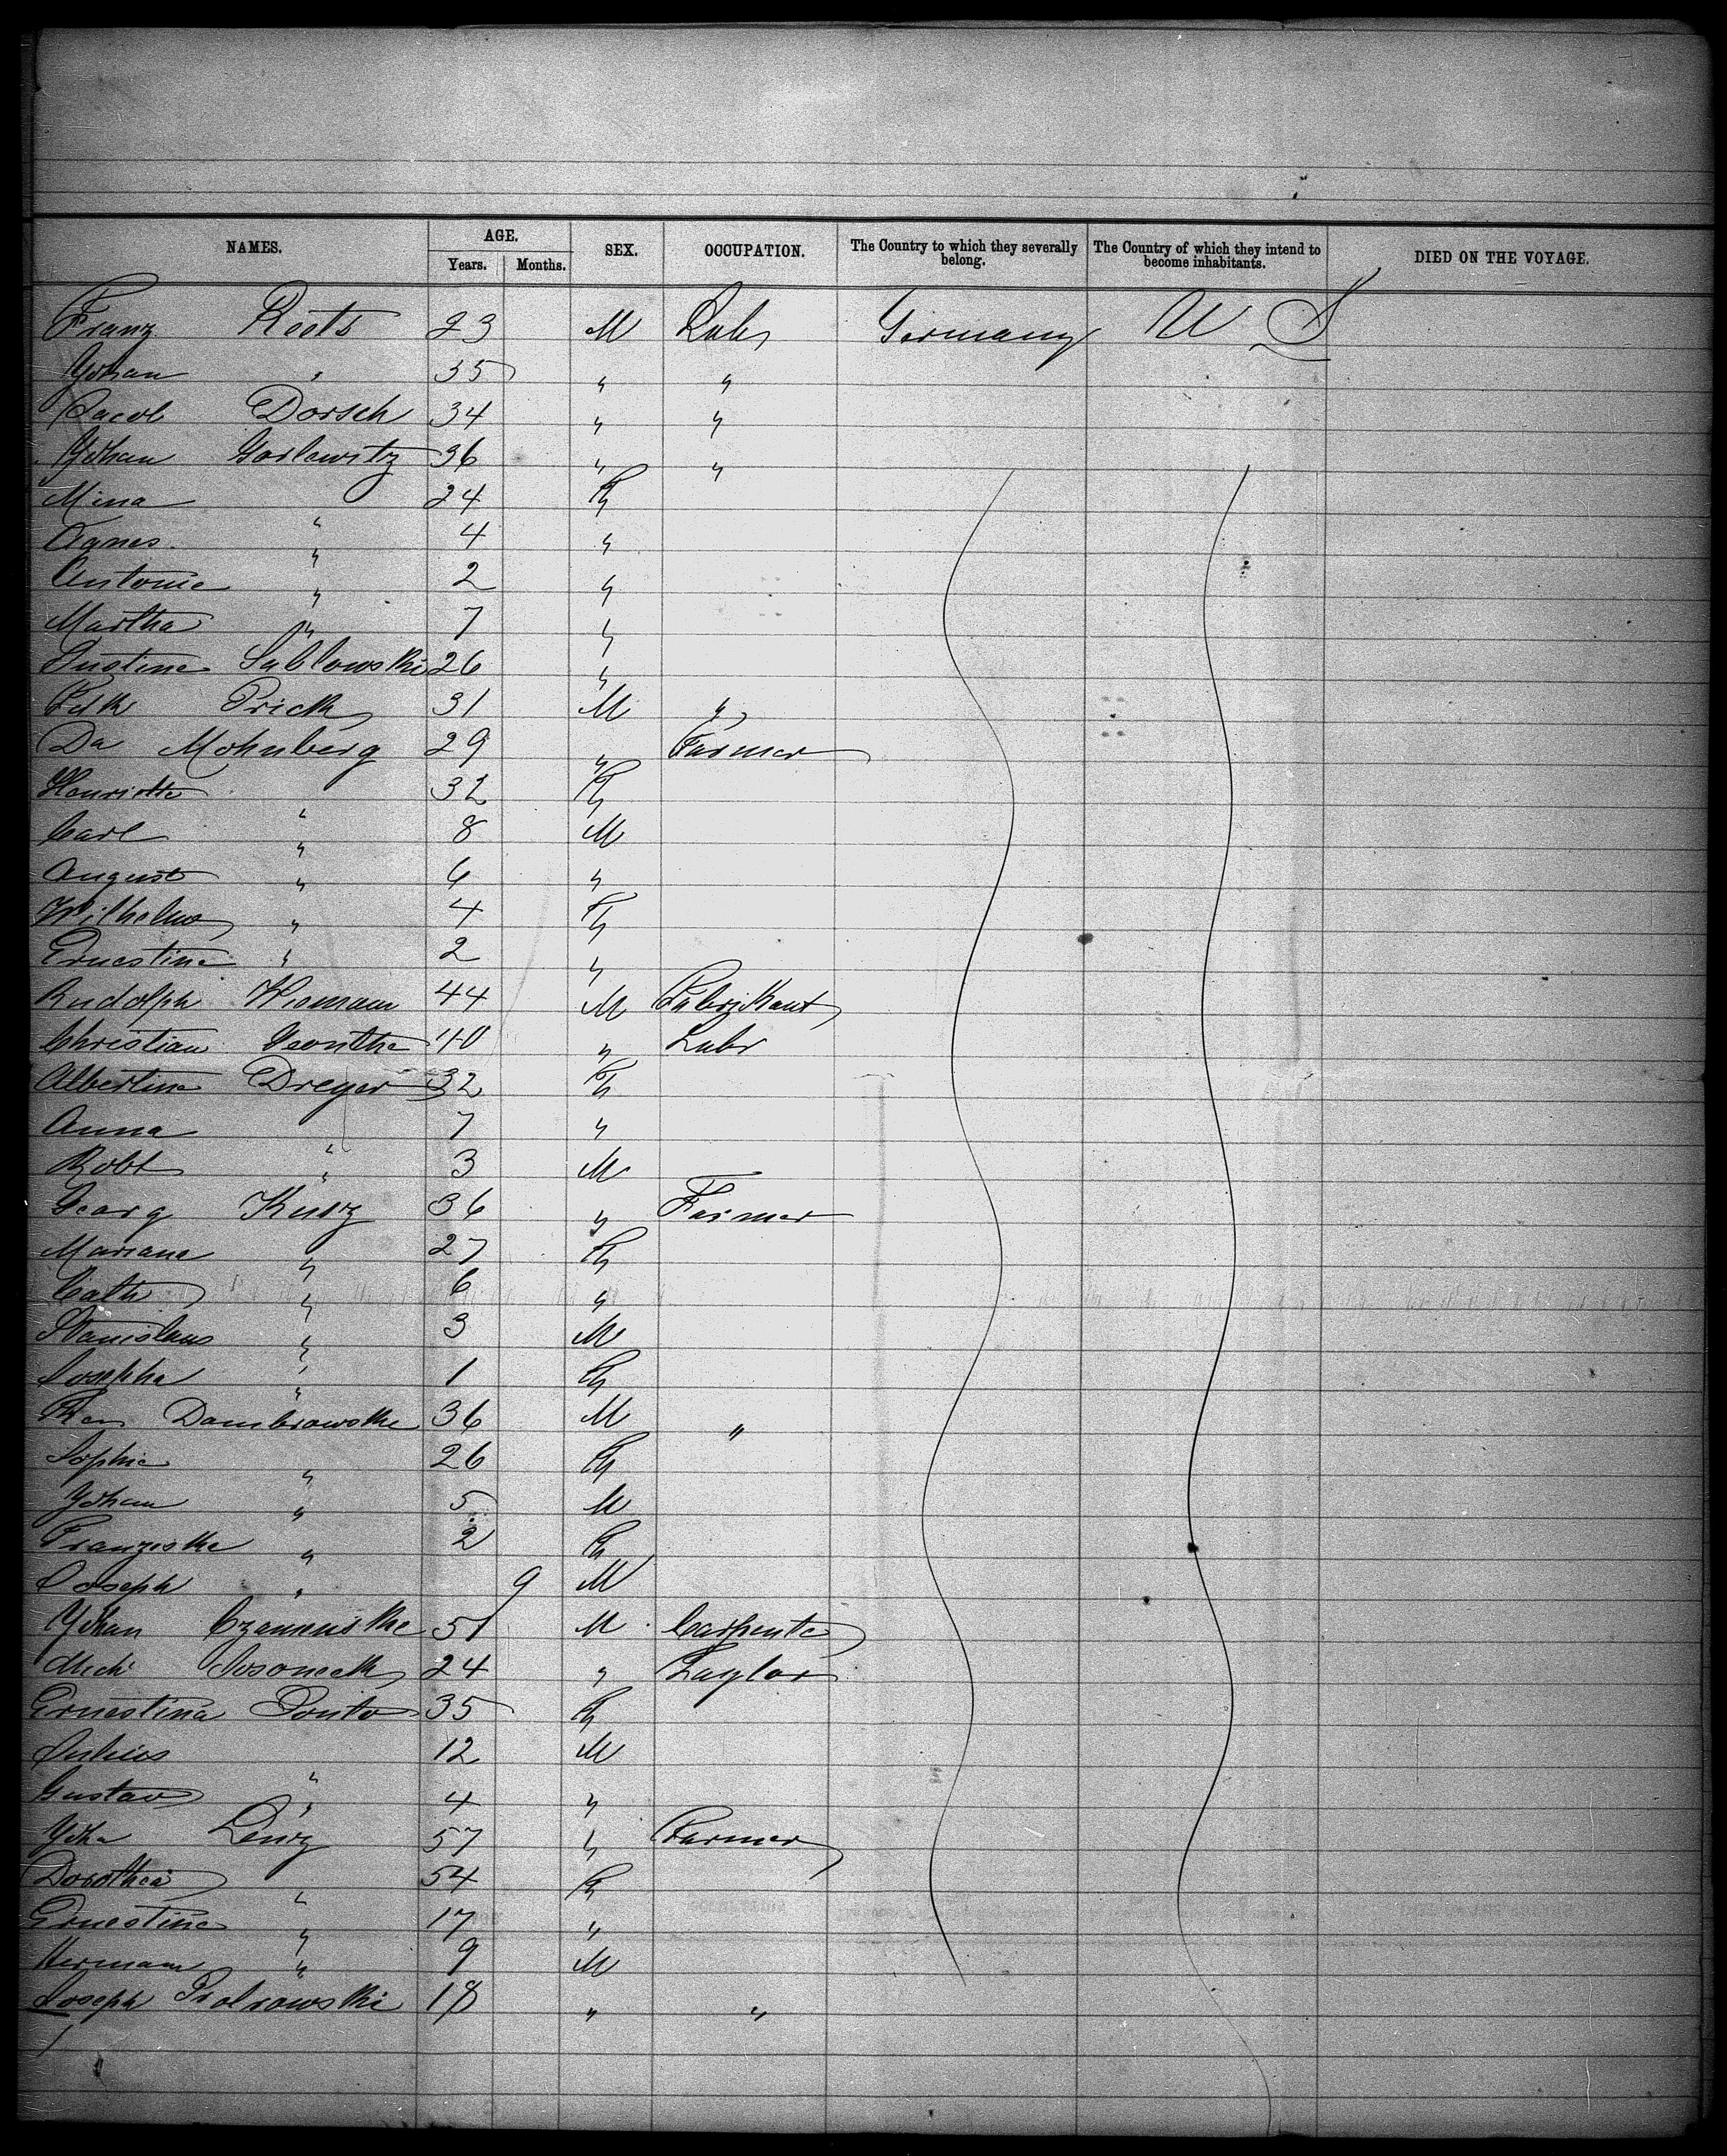 NAMES. AGE. SEX. OCCUPATION. The Country to which they severally belong. The Country of which they intend to become inhabitants. DIED ON THE VOYAGE.
Years. Months.
Franz Roots 23 M Labr Germany U S
Johan " 35 " "
Jacob Dorsch 34 " "
Johan Gorlewitz 36 " "
Mina " 24 F
Agnes " 4 "
Antonie " 2 "
Martha " 7 "
Justine Sablowski 26 "
Prick 31 M "
Da Mohnberg 29 " Farmer
Henriette " 32 F
Carl " 8 M
August " 6 "
Wilhelm " 4 F
Ernestine " 2 "
Rudolph 44 M Fabrikant
Christian 40 " Labr
Albertine Dreyer 32 F
Anna " 7 "
Robt " 3 M
Georg Kurz 36 " Farmer
Mariana " 27 F
Cath " 6 "
Stanislaus " 3 M
Josepha " 1 F
Dambrowske 36 M "
Sophie " 26 F
Johan " 5 M
Franziske " 2 F
Joseph " 9 M
Johan 51 M Carpenter
24 " Taylor
Ernestina Ponto 35 F
Julius " 12 M
Gustav " 4 "
Joh Lenz 57 " Farmer
Dorothea " 54 F
Ernestine " 17 "
Hermann " 9 M
Joseph 18 " "